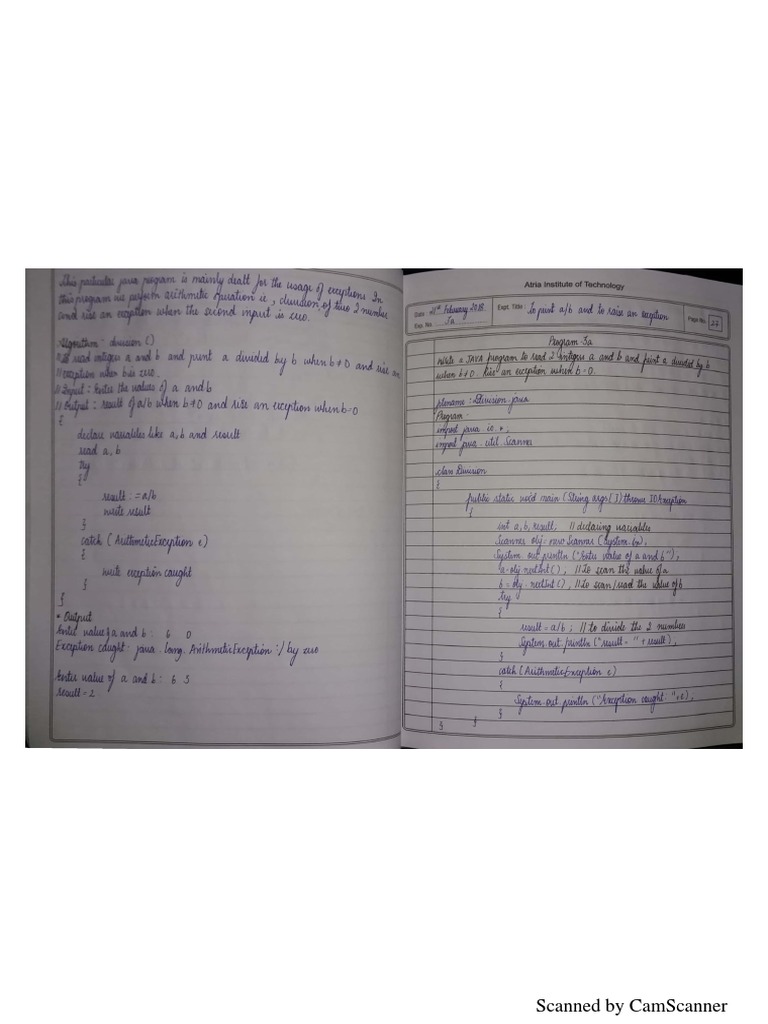 This particular java program is mainly dealt for the usage of exceptions. In
this program we perform arithmetic equation ie, division of two 2 number
and rise an exception when the second input is zero.
Algorithm : division ()
// To read integers a and b and print a divided by b when b≠0 and rise an
// exception when b is zero.
// Input : Enter the values of a and b
// Output : result of a/b when b≠0 and rise an exception when b=0
{
declare variables like a, b and result
read a, b
try
{
result : = a/b
write result
}
catch ( ArithmeticException e)
{
write exception caught
}
}
* Output
Enter value of a and b : 6 0
Exception caught : java . lang . ArithmeticException : / by zero
Enter value of a and b : 6 3
result = 2
Atria Institute of Technology
Date February 2018
Exp. No. 3a
Expt. Title : To print a/b and to raise an exception
Page No. 27
Program-3a
Write a JAVA program to read 2 integers a and b and print a divided by b
when b≠0. Rise an exception when b=0.
filename : Division.java
Program :
import java . io . * ;
import java . util . Scanner
class Division
{
public static void main ( String args [ ] ) throws IOException
{
int a, b, result ; // declaring variables
Scanner obj = new Scanner ( System.in ) ;
System . out . println ("Enter value of a and b") ;
a = obj . nextInt ( ) ; // To scan the value of a
b = obj . nextInt ( ) ; // To scan/read the value of b
try
{
result = a/b ; // to divide the 2 number
System . out . println ("result = " + result) ;
}
catch ( ArithmeticException e)
{
System . out . println ("Exception caught : " +e) ;
}
} }
Scanned by CamScanner